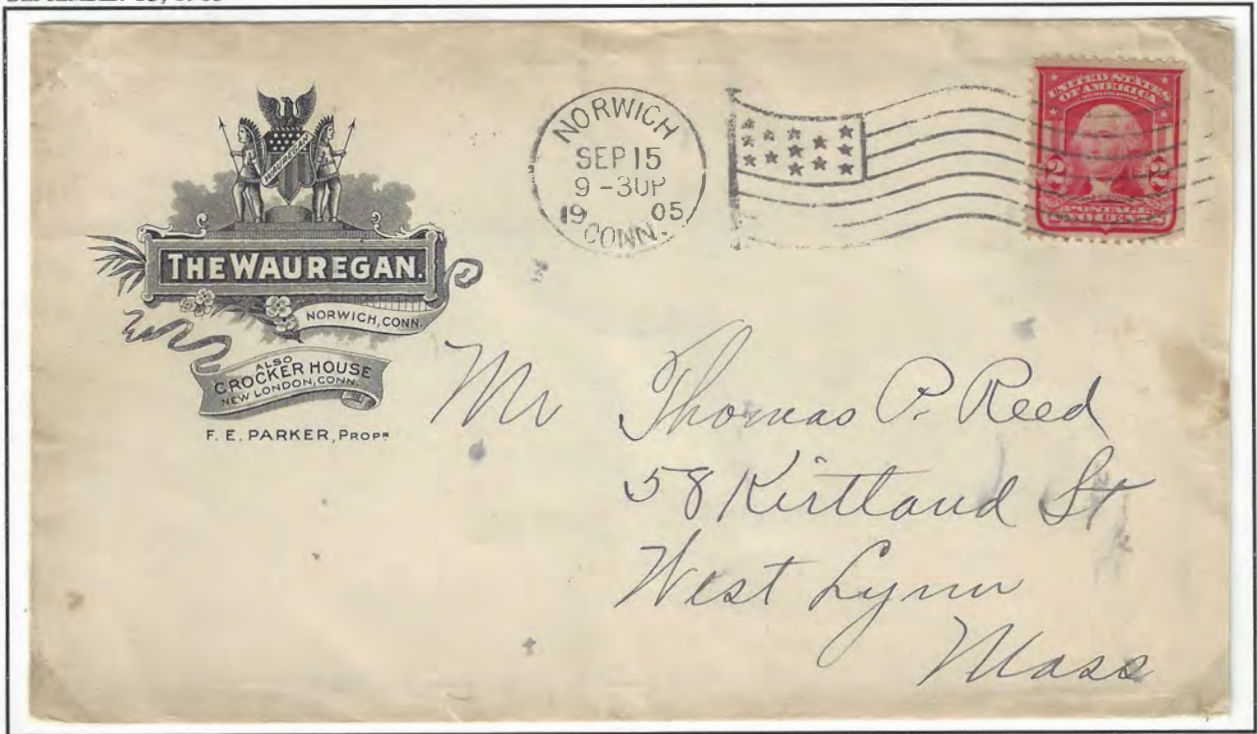 WAUREGAN
THE WAUREGAN.
NORWICH, CONN.
ALSO
CROCKER HOUSE
NEW LONDON, CONN.
F. E. PARKER, PROPR
NORWICH
SEP 15
9-30P
1905
CONN.
UNITED STATES
OF AMERICA
2 2
POSTAGE
Mr Thomas P. Reed
58 Kirtland St
West Lynn
Mass